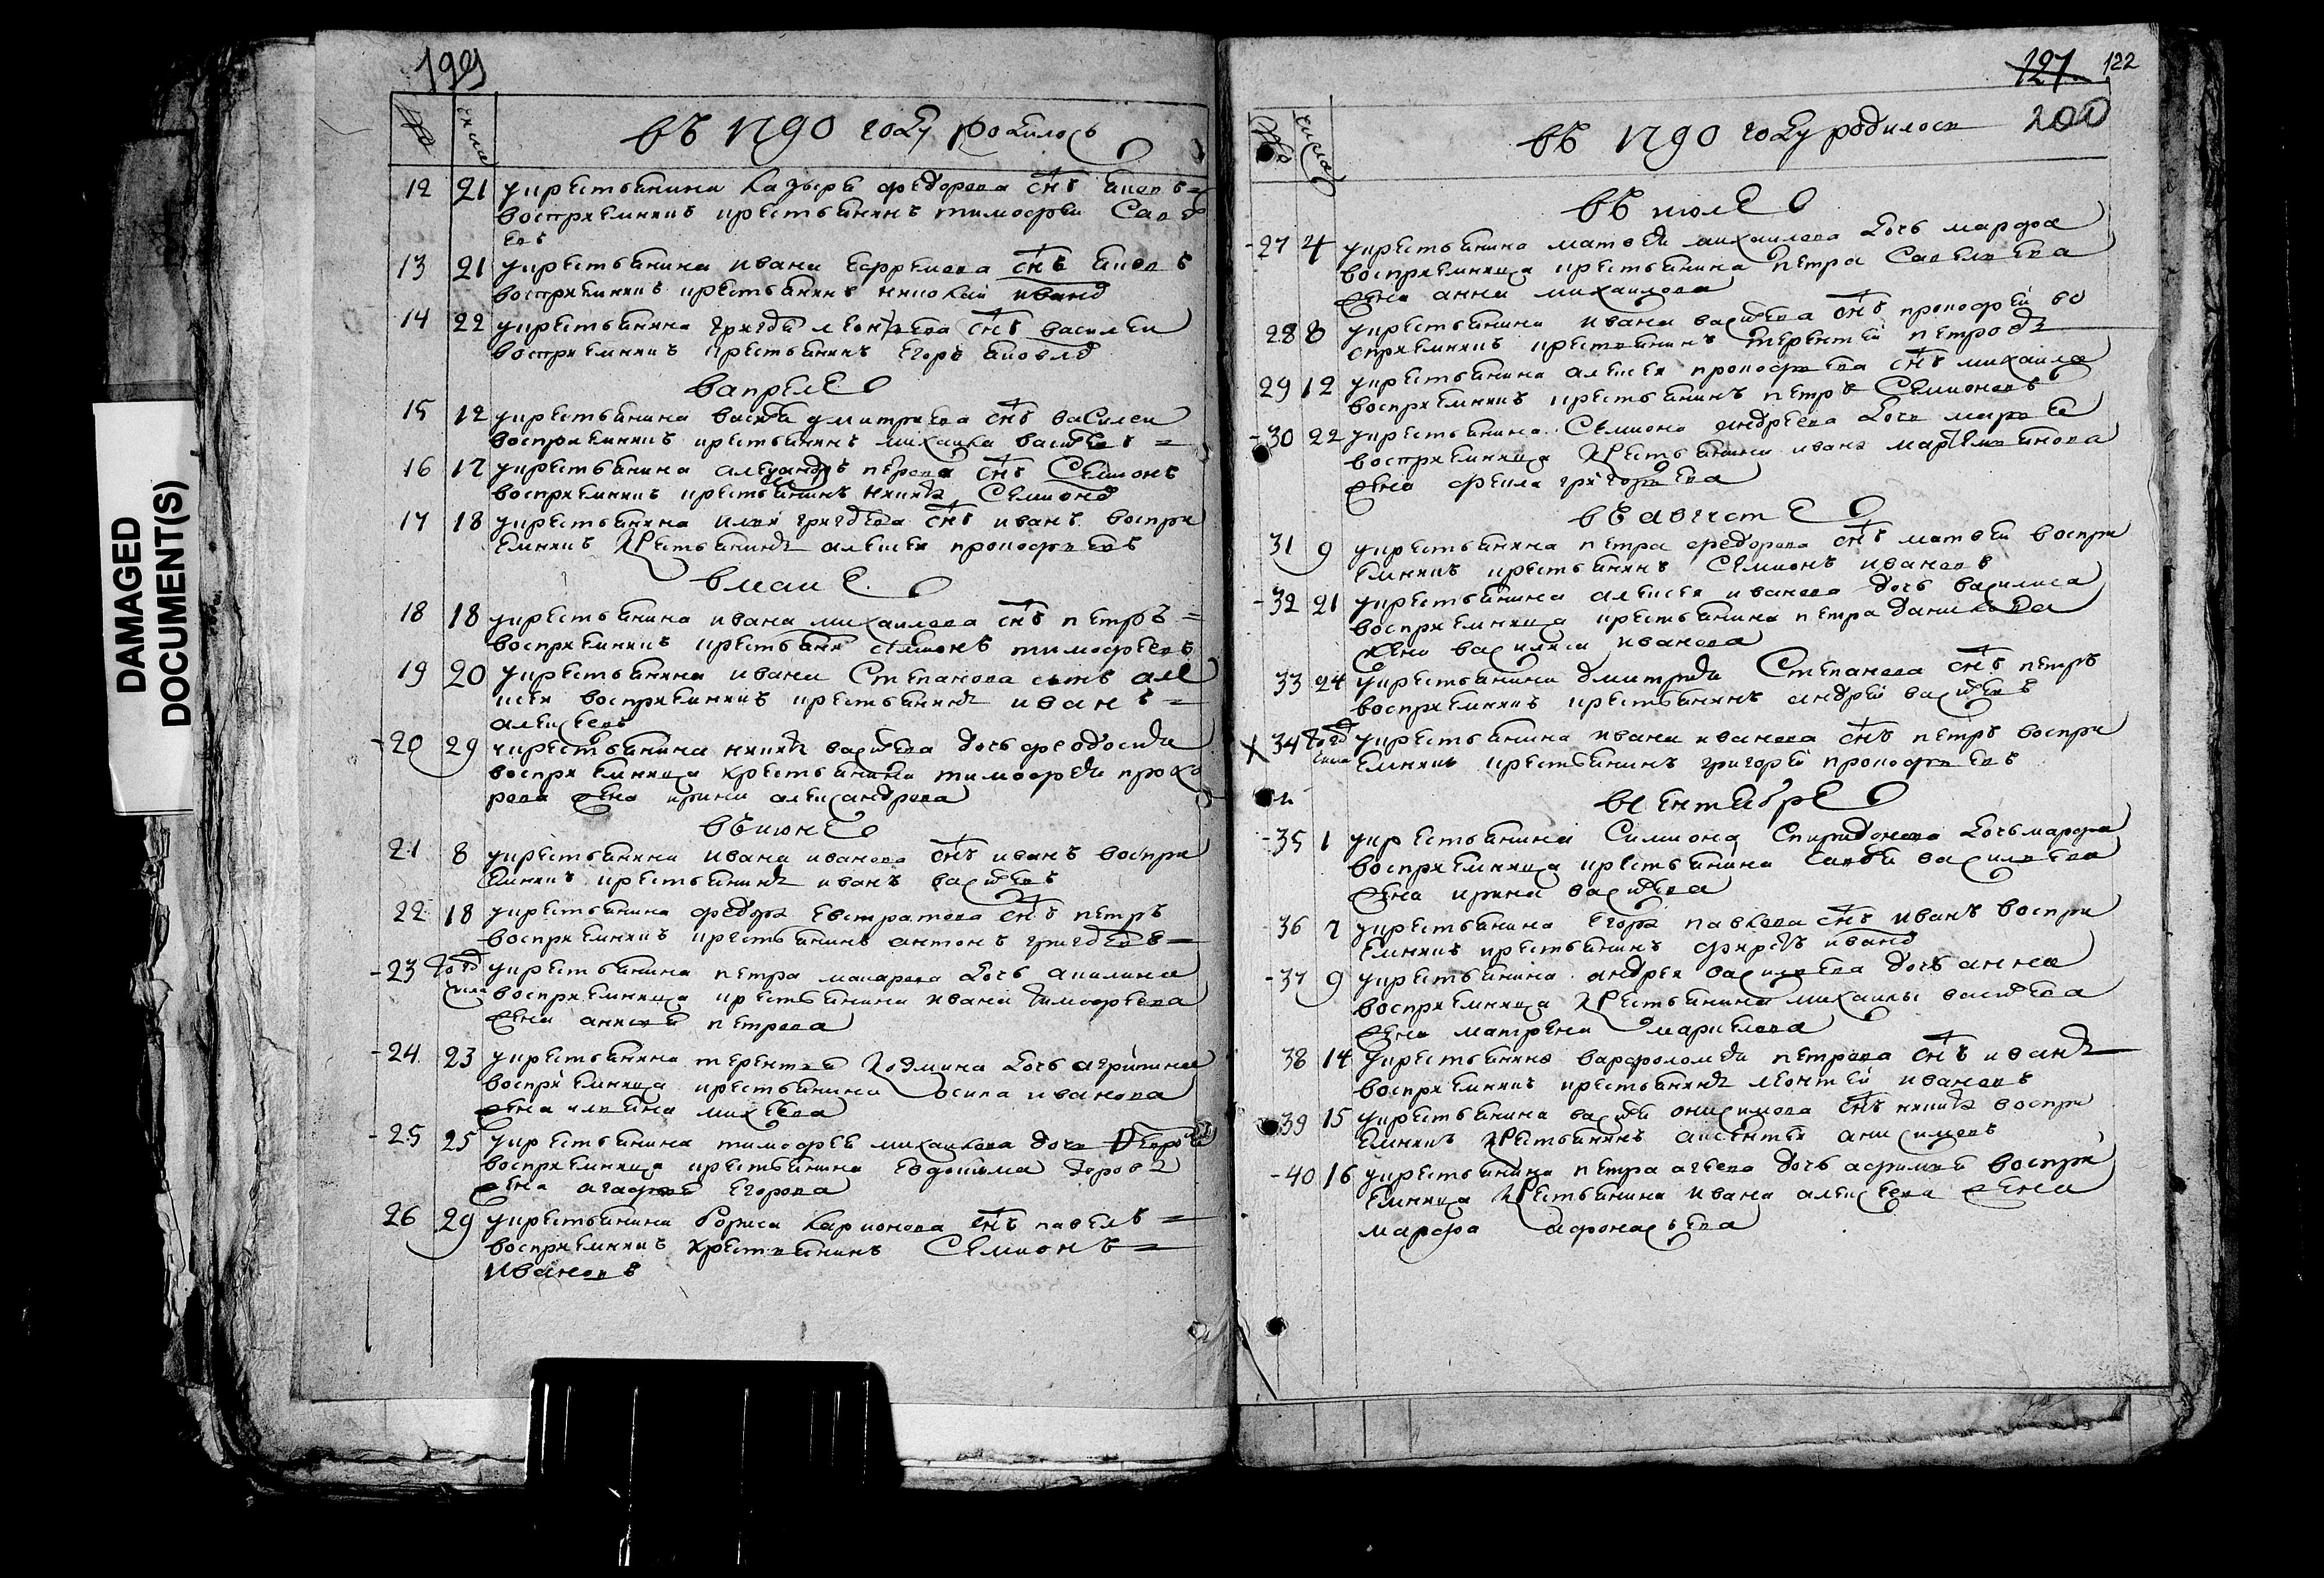 199
числа
въ 1790 году родилось
12 21 укрестьянина Лазыря федорова снъ
восприемникъ крестьянинъ тимофеи Савел
евъ
13 21 укрестьянина ивана ефремова снъ
восприемникъ крестьянинъ николаи иванов
14 22 укрестьянина григорья леонтьева снъ василеи
восприемникъ крестьянинъ егоръ
вапреле
15 12 укрестьянина василья дмитриева снъ василеи
восприемникъ крестьянинъ михаила васильевъ =
16 17 укрестьянина александръ петрова снъ Семионъ
восприемникъ крестьянинъ никита Семионов
17 18 укрестьянина ильи григорьева снъ иванъ воспри
емникъ крестьянинъ алексеи прокофьевъ
вмаие
18 18 укрестьянина ивана михаилова снъ петръ =
восприемникъ крестьяни семионъ тимофеевъ
19 20 укрестьянина ивана Степанова сынъ але
ксеи восприемникъ крестьянинъ иванъ =
алексеевъ
20 29 укрестьянина никиты васильева дочь феодосия
восприемница крестьянина тимофея прохо
рова жена ирина александрова
въ июне
21 8 укрестьянина ивана иванова снъ иванъ воспри
емникъ крестьянинъ иванъ васильевъ
22 18 укрестьянина федора евстратова снъ петръ
восприемникъ крестьянинъ антонъ григорьевъ
23 того числа укрестьянина петра макарова дочь акилина
восприемница крестьянина ивана тимофеева
жена анисья петрова
24 23 укрестьянина терентья козмина дочь агрипина
восприемница крестьянина осипа иванова
жена ульяна михеева
25 25 укрестьянина тимофея михаилова дочь
восприемница крестьянина евдокима
жена агафья егорова
26 29 укрестьянина бориса ларионова снъ павелъ =
восприемникъ крестьянинъ Семионъ =
ивановъ
121 122
200
числа
въ 1790 году родилося
въ июле
27 4 укрестьянина матвея михаилова дочь марфа
восприемница крестьянина петра Савельева
жена анна михаилова
28 8 укрестьянина ивана васильева снъ прокофеи во
сприемникъ крестьянинъ терентеи петровъ
29 12 укрестьянина алексея прокофьева снъ михаила
восприемникъ крестьянинъ петръ Семионовъ
30 22 укрестьянина Семиона андреева дочь
восприемница крестьянина ивана мартемьянова
жена фекла григорьева
въ августе
31 9 укрестьянина петра федорова снъ матвеи воспри
емникъ крестьянинъ Семионъ ивановъ
32 21 укрестьянина алексея иванова дочь василиса
восприемница крестьянина петра данилова
жена василиса иванова
33 24 укрестьянина дмитрия Степанова снъ петръ
восприемникъ крестьянинъ андреи васильевъ
34 того числа укрестьянина ивана иванова снъ петръ воспри
емникъ крестьянинъ григореи прокофьевъ
всентябре
35 1 укрестьянина Симиона Спиридонова дочь марфа
восприемница крестьянина савы васильева
жена ирина васильева
36 7 укрестьянина егора павлова снъ иванъ воспри
емникъ крестьянинъ фирсъ иванов
37 9 укрестьянина андрея васильева дочь анна
восприемница крестьянина михаилы васильева
жена матрена маркелова
38 14 укрестьянина варфоломея петрова снъ иванъ
восприемникъ крестьянинъ леонтеи ивановъ
39 15 укрестьянина василья онисимова снъ никита воспри
емникъ крестьянинъ аксентеи анисимовъ
40 16 укрестьянина петра агеева дочь афимья воспри
емница крестьянина ивана алексеева жена
марфа афонасьева
DAMAGED
DOCUMENT(S)